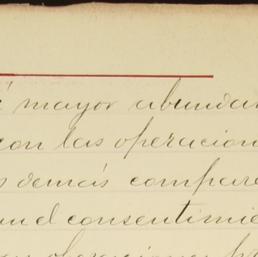 á mayor abundan
con las operacion
s demás compare
un el consentimie